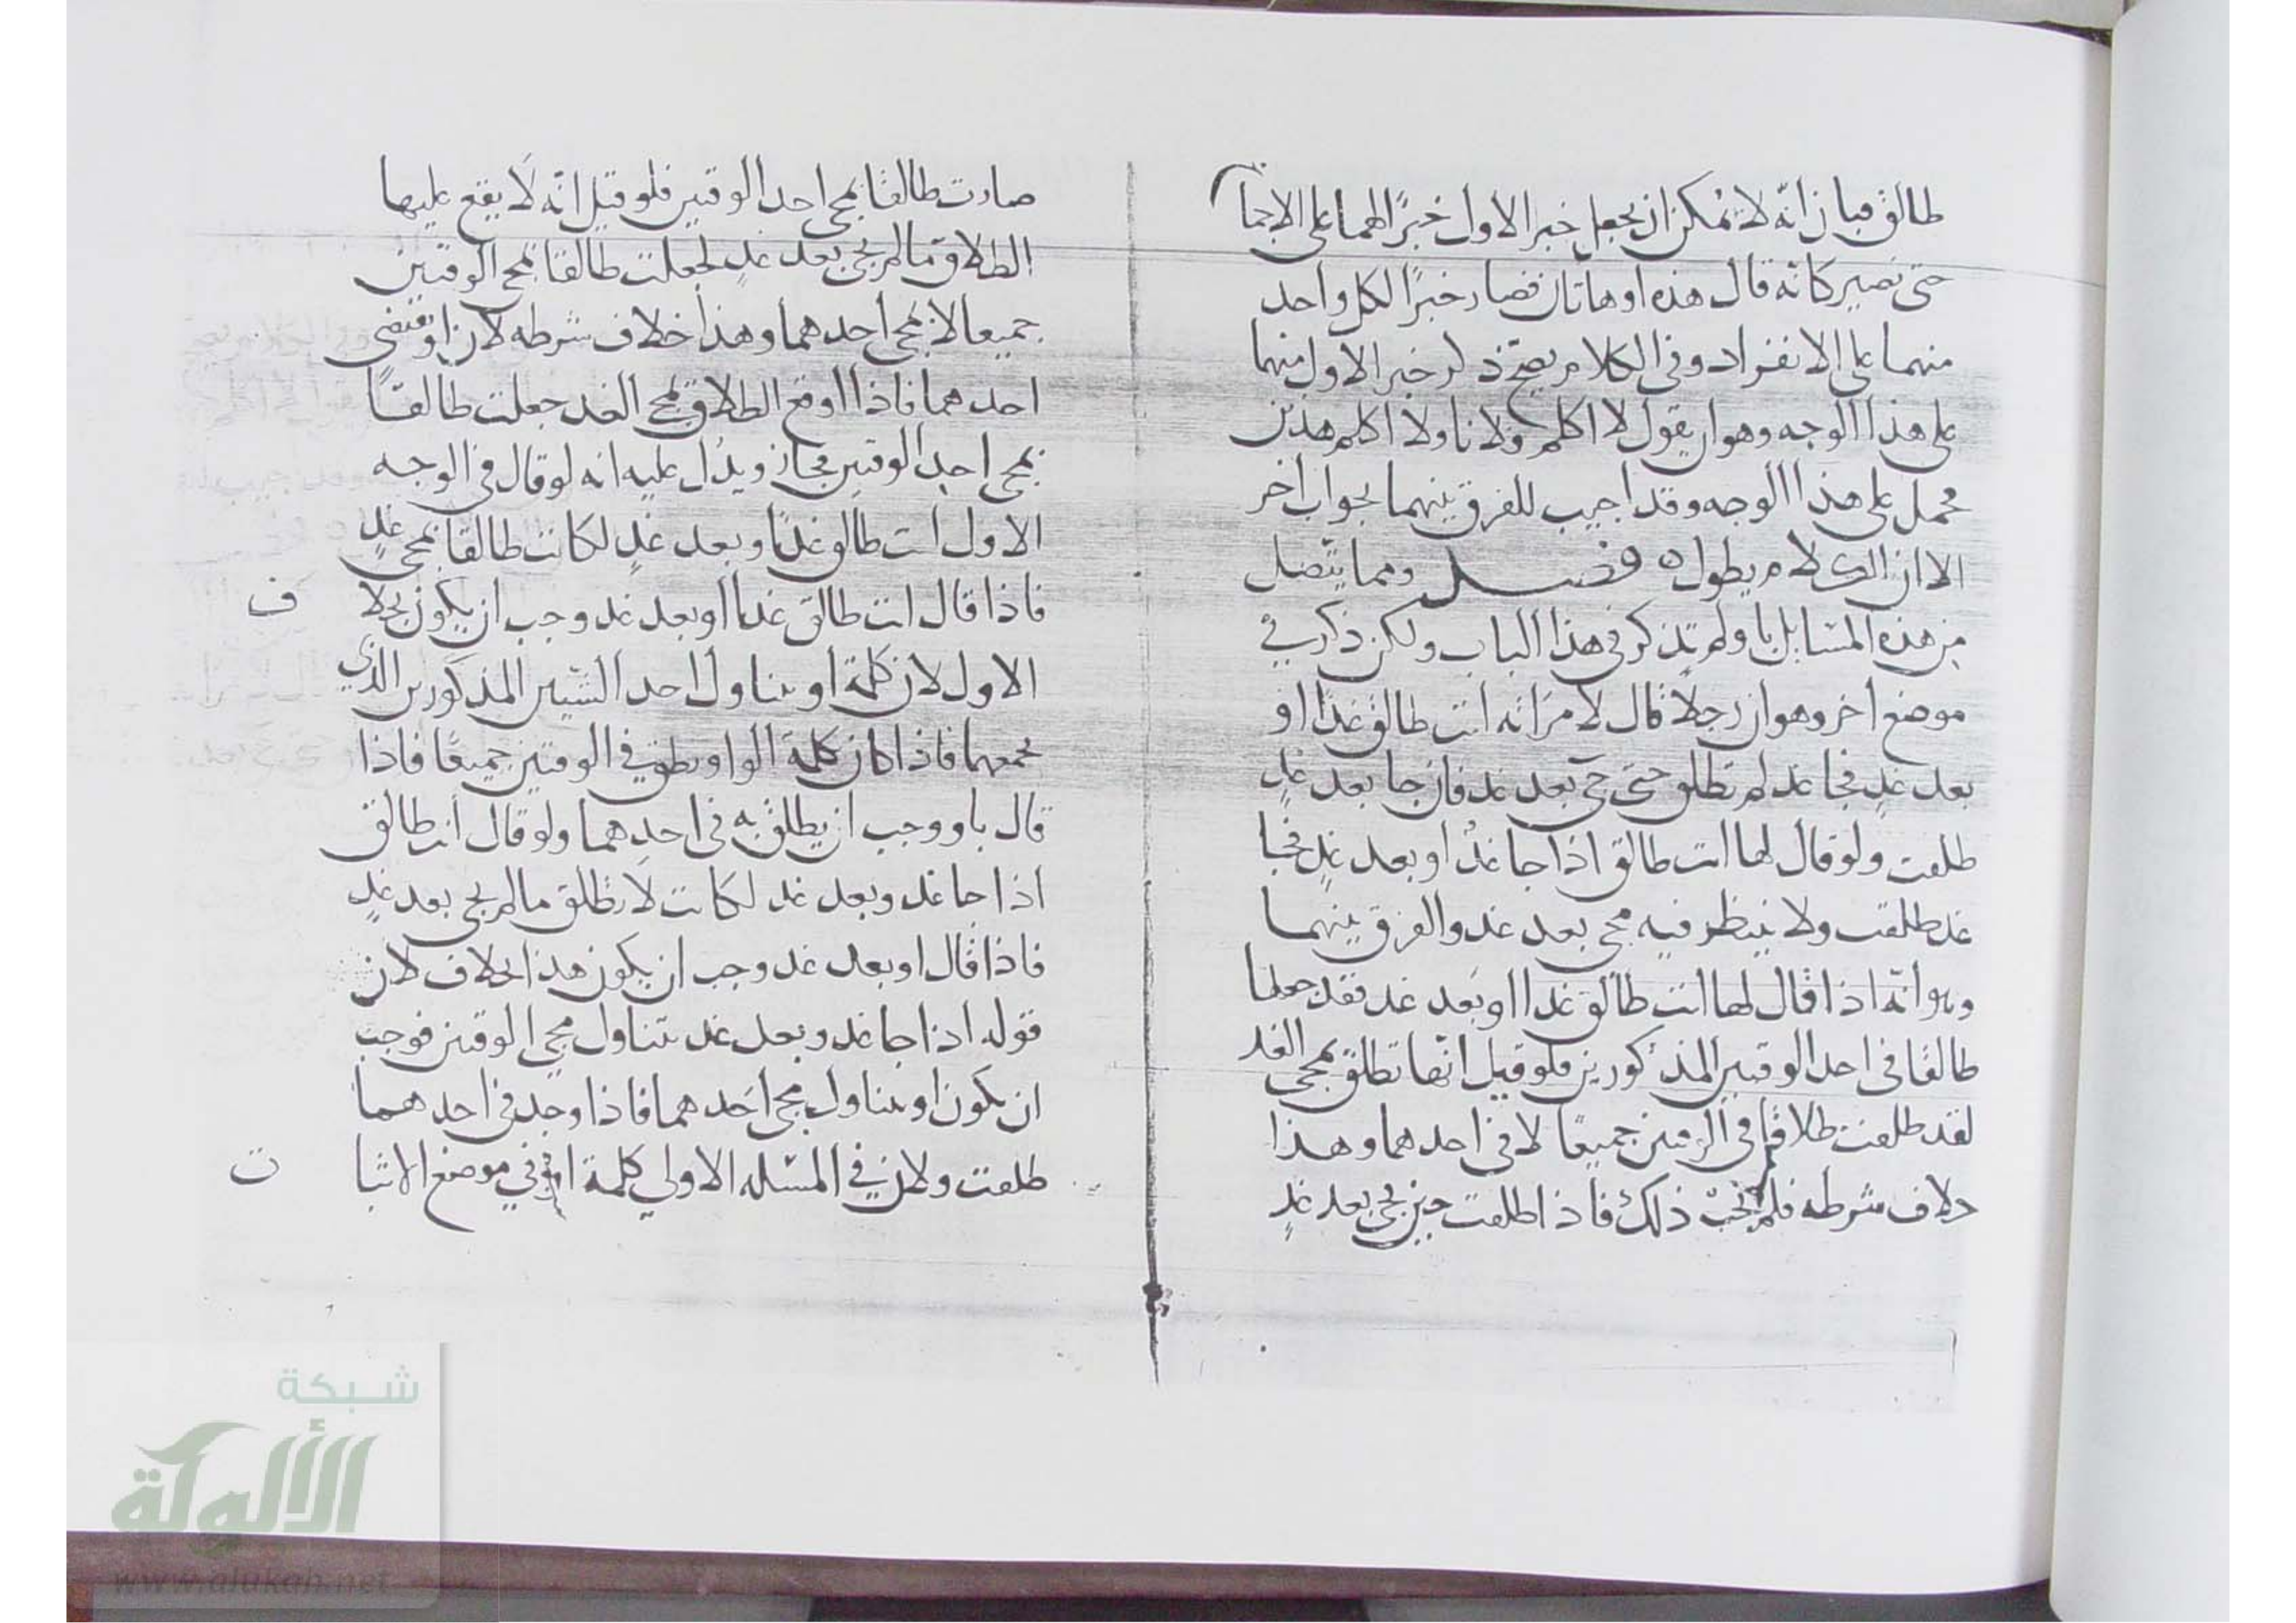 طالق فبان انّه لا يمكن ان يجعل خبر الاول خبرًا لهما على الاجتما
حتى تصير كانّه قال هذه او هاتان فصار خبرًا لكل واحد
منهما على الانفراد وفى الكلام يصحّ ذلر خبر الاول منهما
على هذا الوجه وهو ان يقول لا اكلم فلانا ولا اكلم هذين
محمل على هذا الوجه وقد اجيب للفرق بينهما بجواب اخر
الا ان الكلام يطول ه فصل ومما يتّصل
من هذه المسايل باو لم تذكر فى هذا الباب ولكن ذكر في
موضع اخر وهو ان رجلا قال لامرَاته انت طالق غدًا او
بعد غدٍ فجا غد لم تطلق حتى يجى بعد غد فان جا بعد غدٍ
طلقت ولو قال لها انت طالق اذا جا غدٌ او بعد غدٍ فجا
غد طلقت ولا ينتظر فيه مجى بعد غد والفرق بينهما
وهو انّه اذا قال لها انت طالق غدا او بَعد غد فقد جعلها
طالقا فى احد الوقتين المذكورين فلو قيل انّها تطلق بمجى الغد
لقد طلقت طلاقها فى الزمنين جميعًا لا فى احدهما وهذا
خلاف شرطه فلم يجب ذلك فاذا طلقت حين يجى بعد غدٍ
صارت طالقا بمجى احد الوقتين فلو قيل انّه لَا يقع عليها
الطلاق ما لم يجى بعد غدٍ لجعلت طالقا بمجى الوقتين
جميعا لا بمجى احدهما وهذا خلاف شرطه لان او تقتضى
احدهما فاذا اوقع الطلاق بمجى الغد جعلت طالقًا
بمجى احد الوقتين فجاز ويدُل عليه انه لو قال فى الوجه
الاول انت طالق غدًا وبعد غدٍ لكانت طالقا بمجى غدٍ
فاذا قال انت طالق غدا او بعد غد وجب ان يكون بخلا ف
الاول لان كلمة او يتناول احد الشيئين المذكورين الذي
يجمعهما فاذا كان كلمة الواو يطلق في الوقتين جميعًا فاذا
قال باو وجب ان يطلق به فى احدِهما ولو قال انت طالق
اذا جا غد وبعد غد لكانت لَا تطلق ما لم يجى بعد غدٍ
فاذا قال او بعد غد وجب ان يكون هذا بخلاف لان
قوله اذا جا غد وبعد غد يتناول مجى الوقتين فوجب
ان يكون او يتناول مجى احَدهما فاذا وجد فى احدهما
طلقت ولان في المسئله الاولي كلمة او في موضع الاثبا ت
شبكة
الألوكة
www.alukah.net